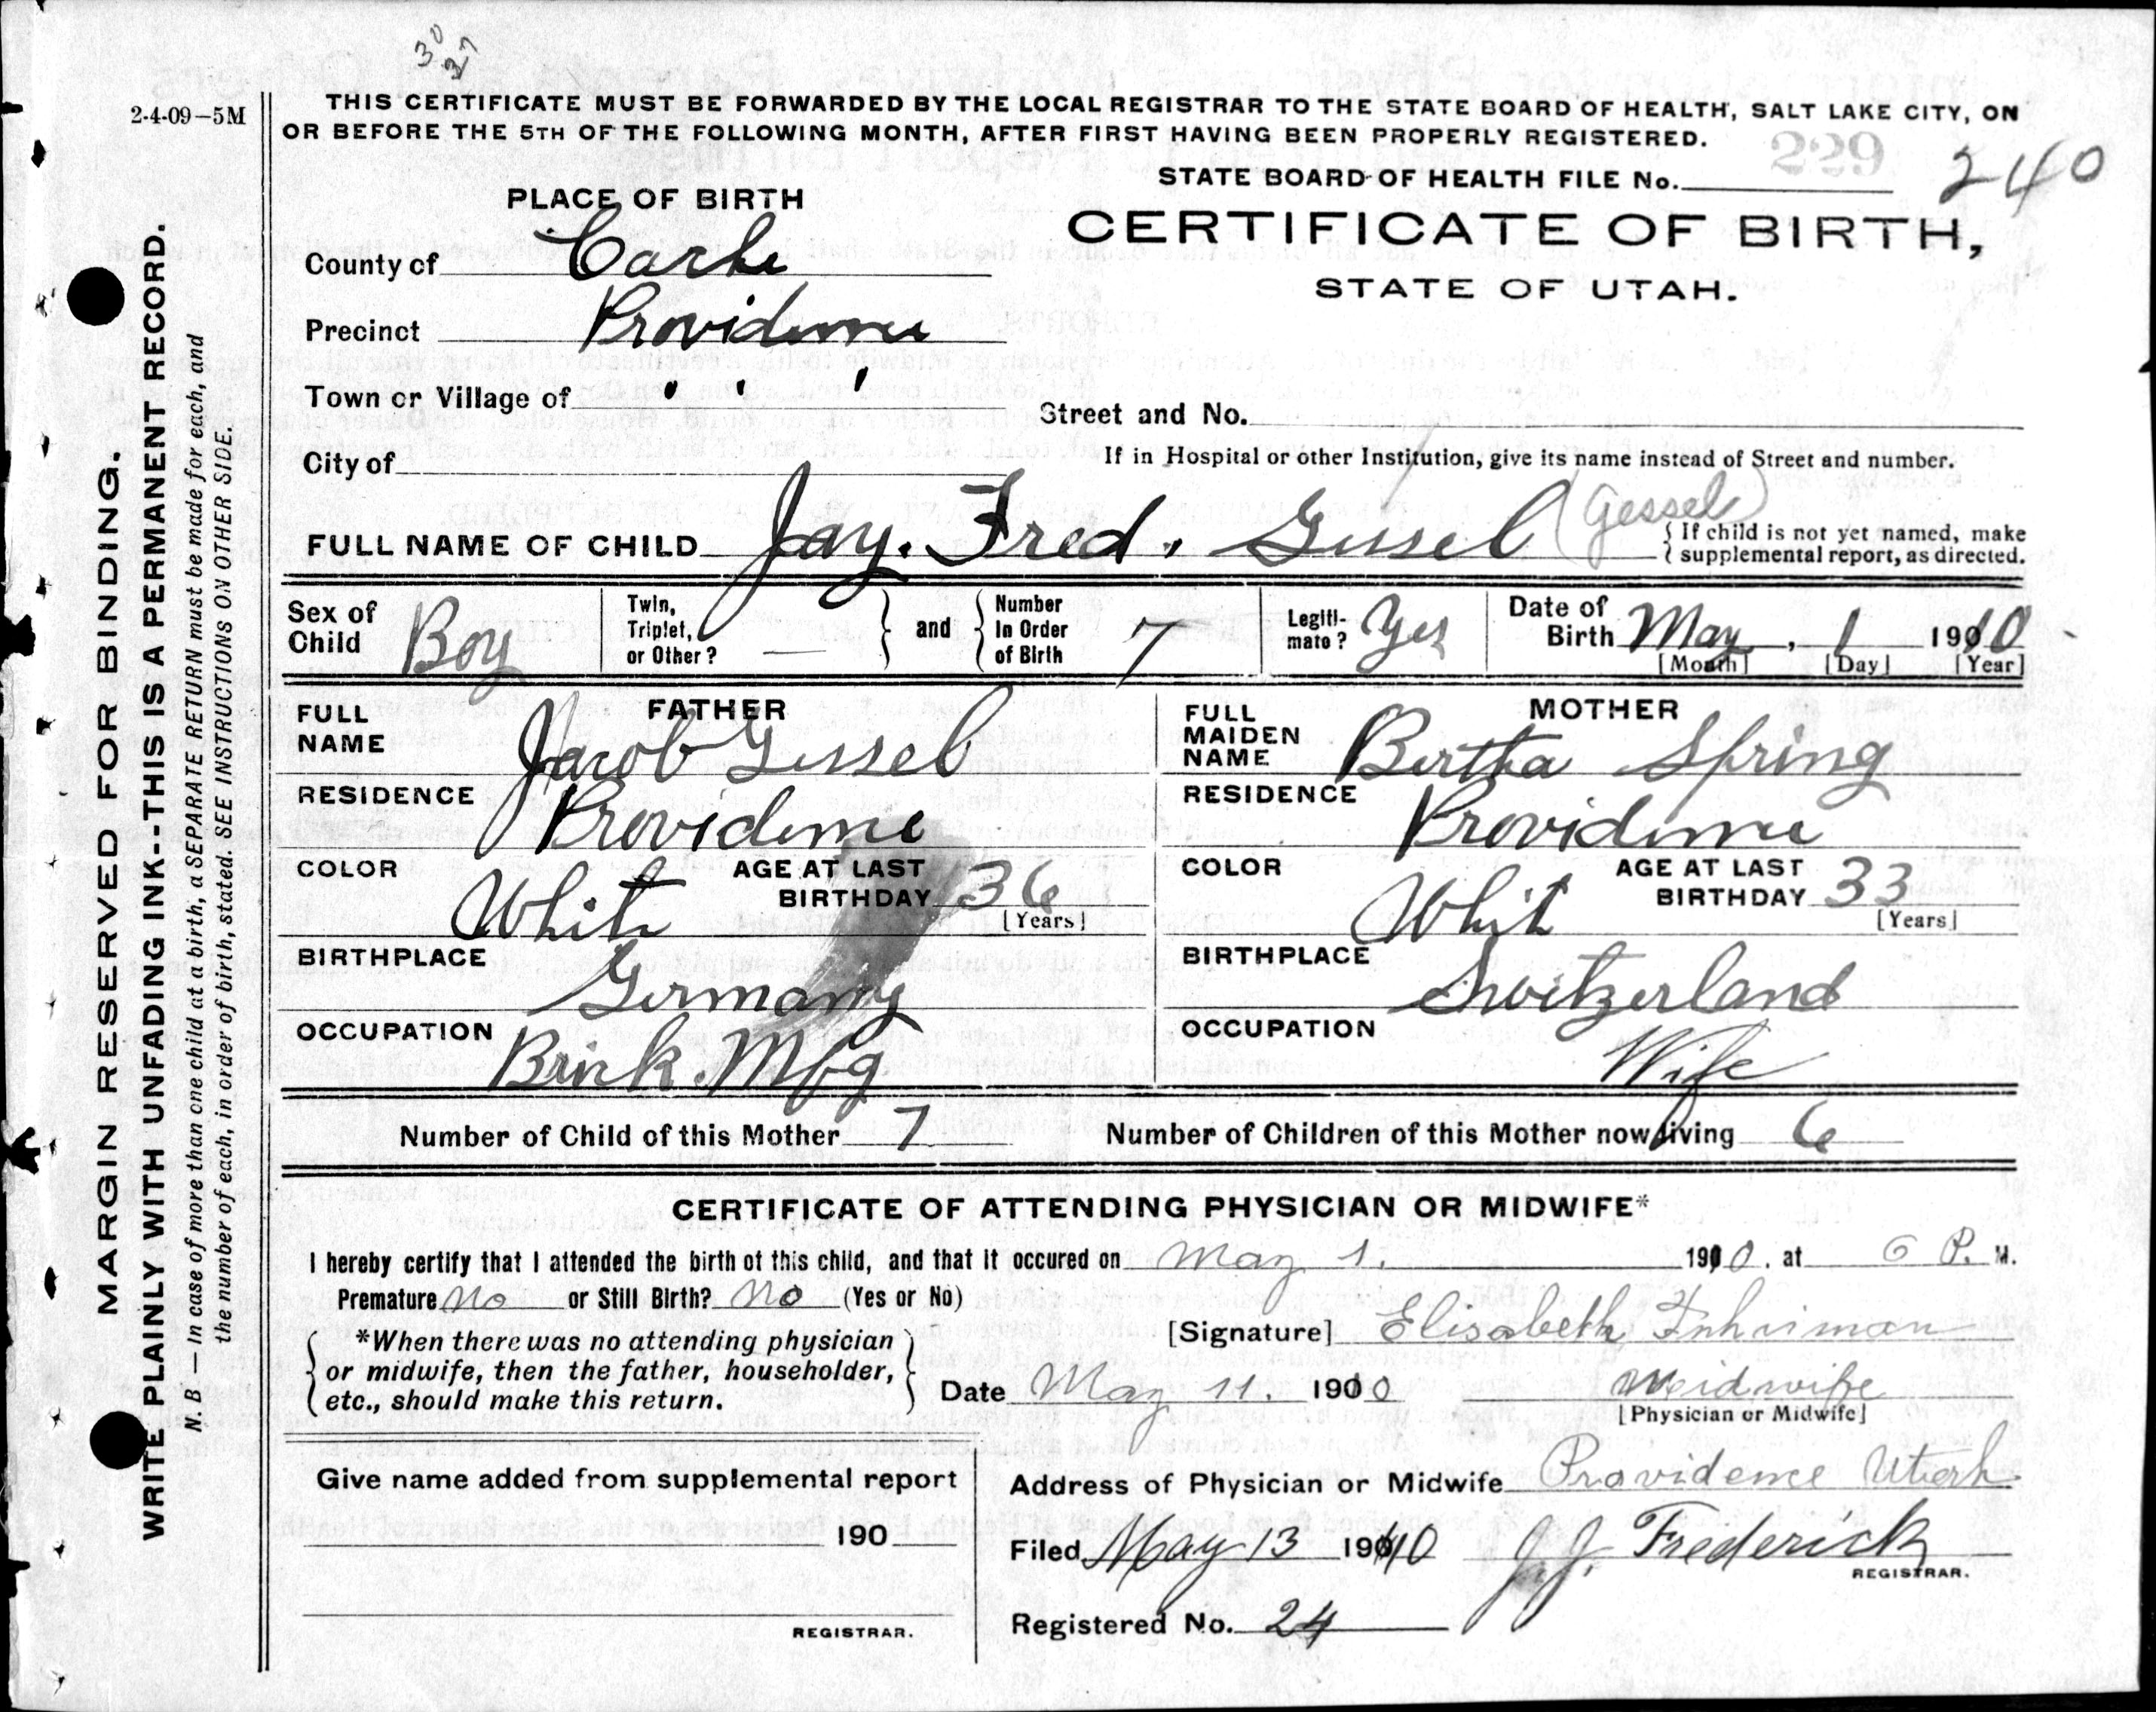 30
27
2-4-09–5M
THIS CERTIFICATE MUST BE FORWARDED BY THE LOCAL REGISTRAR TO THE STATE BOARD OF HEALTH, SALT LAKE CITY, ON
OR BEFORE THE 5TH OF THE FOLLOWING MONTH, AFTER FIRST HAVING BEEN PROPERLY REGISTERED.
STATE BOARD OF HEALTH FILE No. 229 240
PLACE OF BIRTH
CERTIFICATE OF BIRTH,
STATE OF UTAH.
County of Cache
Precinct Providence
Town or Village of " " "
Street and No.
City of
If in Hospital or other Institution, give its name instead of Street and number.
FULL NAME OF CHILD Jay. Fred. Gessel (Gessel)
{ If child is not yet named, make
supplemental report, as directed.
Sex of Child Boy
Twin, Triplet, or Other? —
and
Number In Order of Birth 7
Legiti-mate? Yes
Date of Birth May, 1 1910
[Month] [Day] [Year]
FATHER
FULL NAME Jacob Gessel
RESIDENCE Providence
COLOR White
AGE AT LAST BIRTHDAY 36
[Years]
BIRTHPLACE Germany
OCCUPATION Brick. Mfg
MOTHER
FULL MAIDEN NAME Bertha Spring
RESIDENCE Providence
COLOR Whit
AGE AT LAST BIRTHDAY 33
[Years]
BIRTHPLACE Switzerland
OCCUPATION Wife
Number of Child of this Mother 7
Number of Children of this Mother now living 6
CERTIFICATE OF ATTENDING PHYSICIAN OR MIDWIFE*
I hereby certify that I attended the birth of this child, and that it occured on May 1. 1910. at 6 P. M.
Premature No or Still Birth? No (Yes or No)
*When there was no attending physician
or midwife, then the father, householder,
etc., should make this return.
[Signature] Elisabeth
Date May 11. 1910
Meidwife
[Physician or Midwife]
Give name added from supplemental report
190
REGISTRAR.
Address of Physician or Midwife Providence Utah
Filed May 13 1910 J. J. Frederick
REGISTRAR.
Registered No. 24
MARGIN RESERVED FOR BINDING.
WRITE PLAINLY WITH UNFADING INK--THIS IS A PERMANENT RECORD.
N. B — In case of more than one child at a birth, a SEPARATE RETURN must be made for each, and
the number of each, in order of birth, stated. SEE INSTRUCTIONS ON OTHER SIDE.